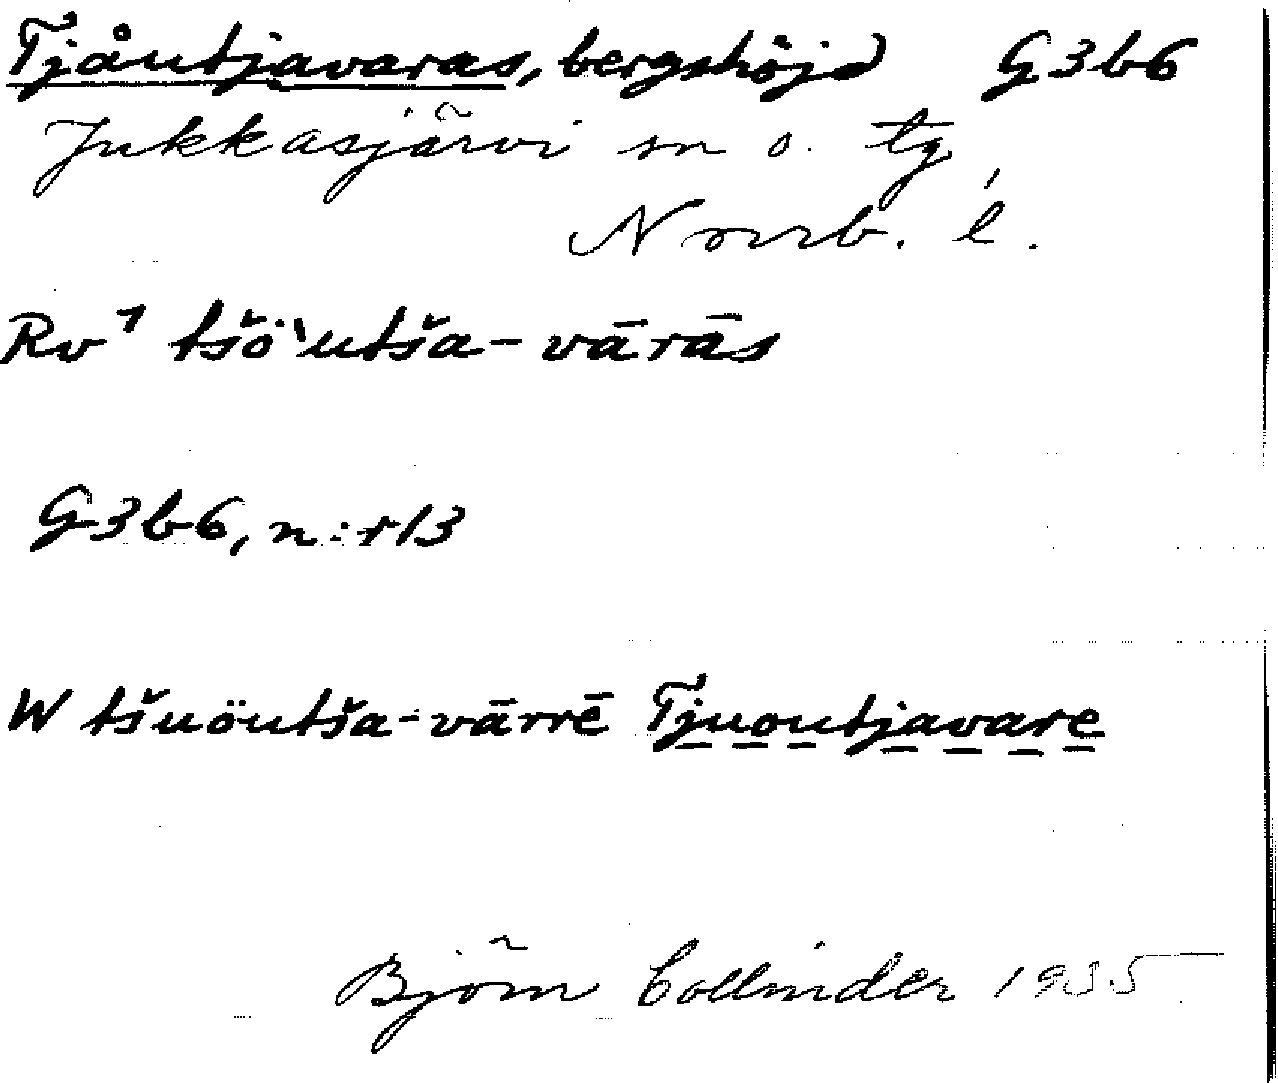 Tjåutjavaras, bergshöjd G3b6
Jukkasjärvi sn o. tg,
Norrb. l.
Rv¹ tšȯ͔ˋutša-vārās
G3b6, n:r 13
W tšuöutša-vārrē Tjuoutjavare
Björn Collinder 1935